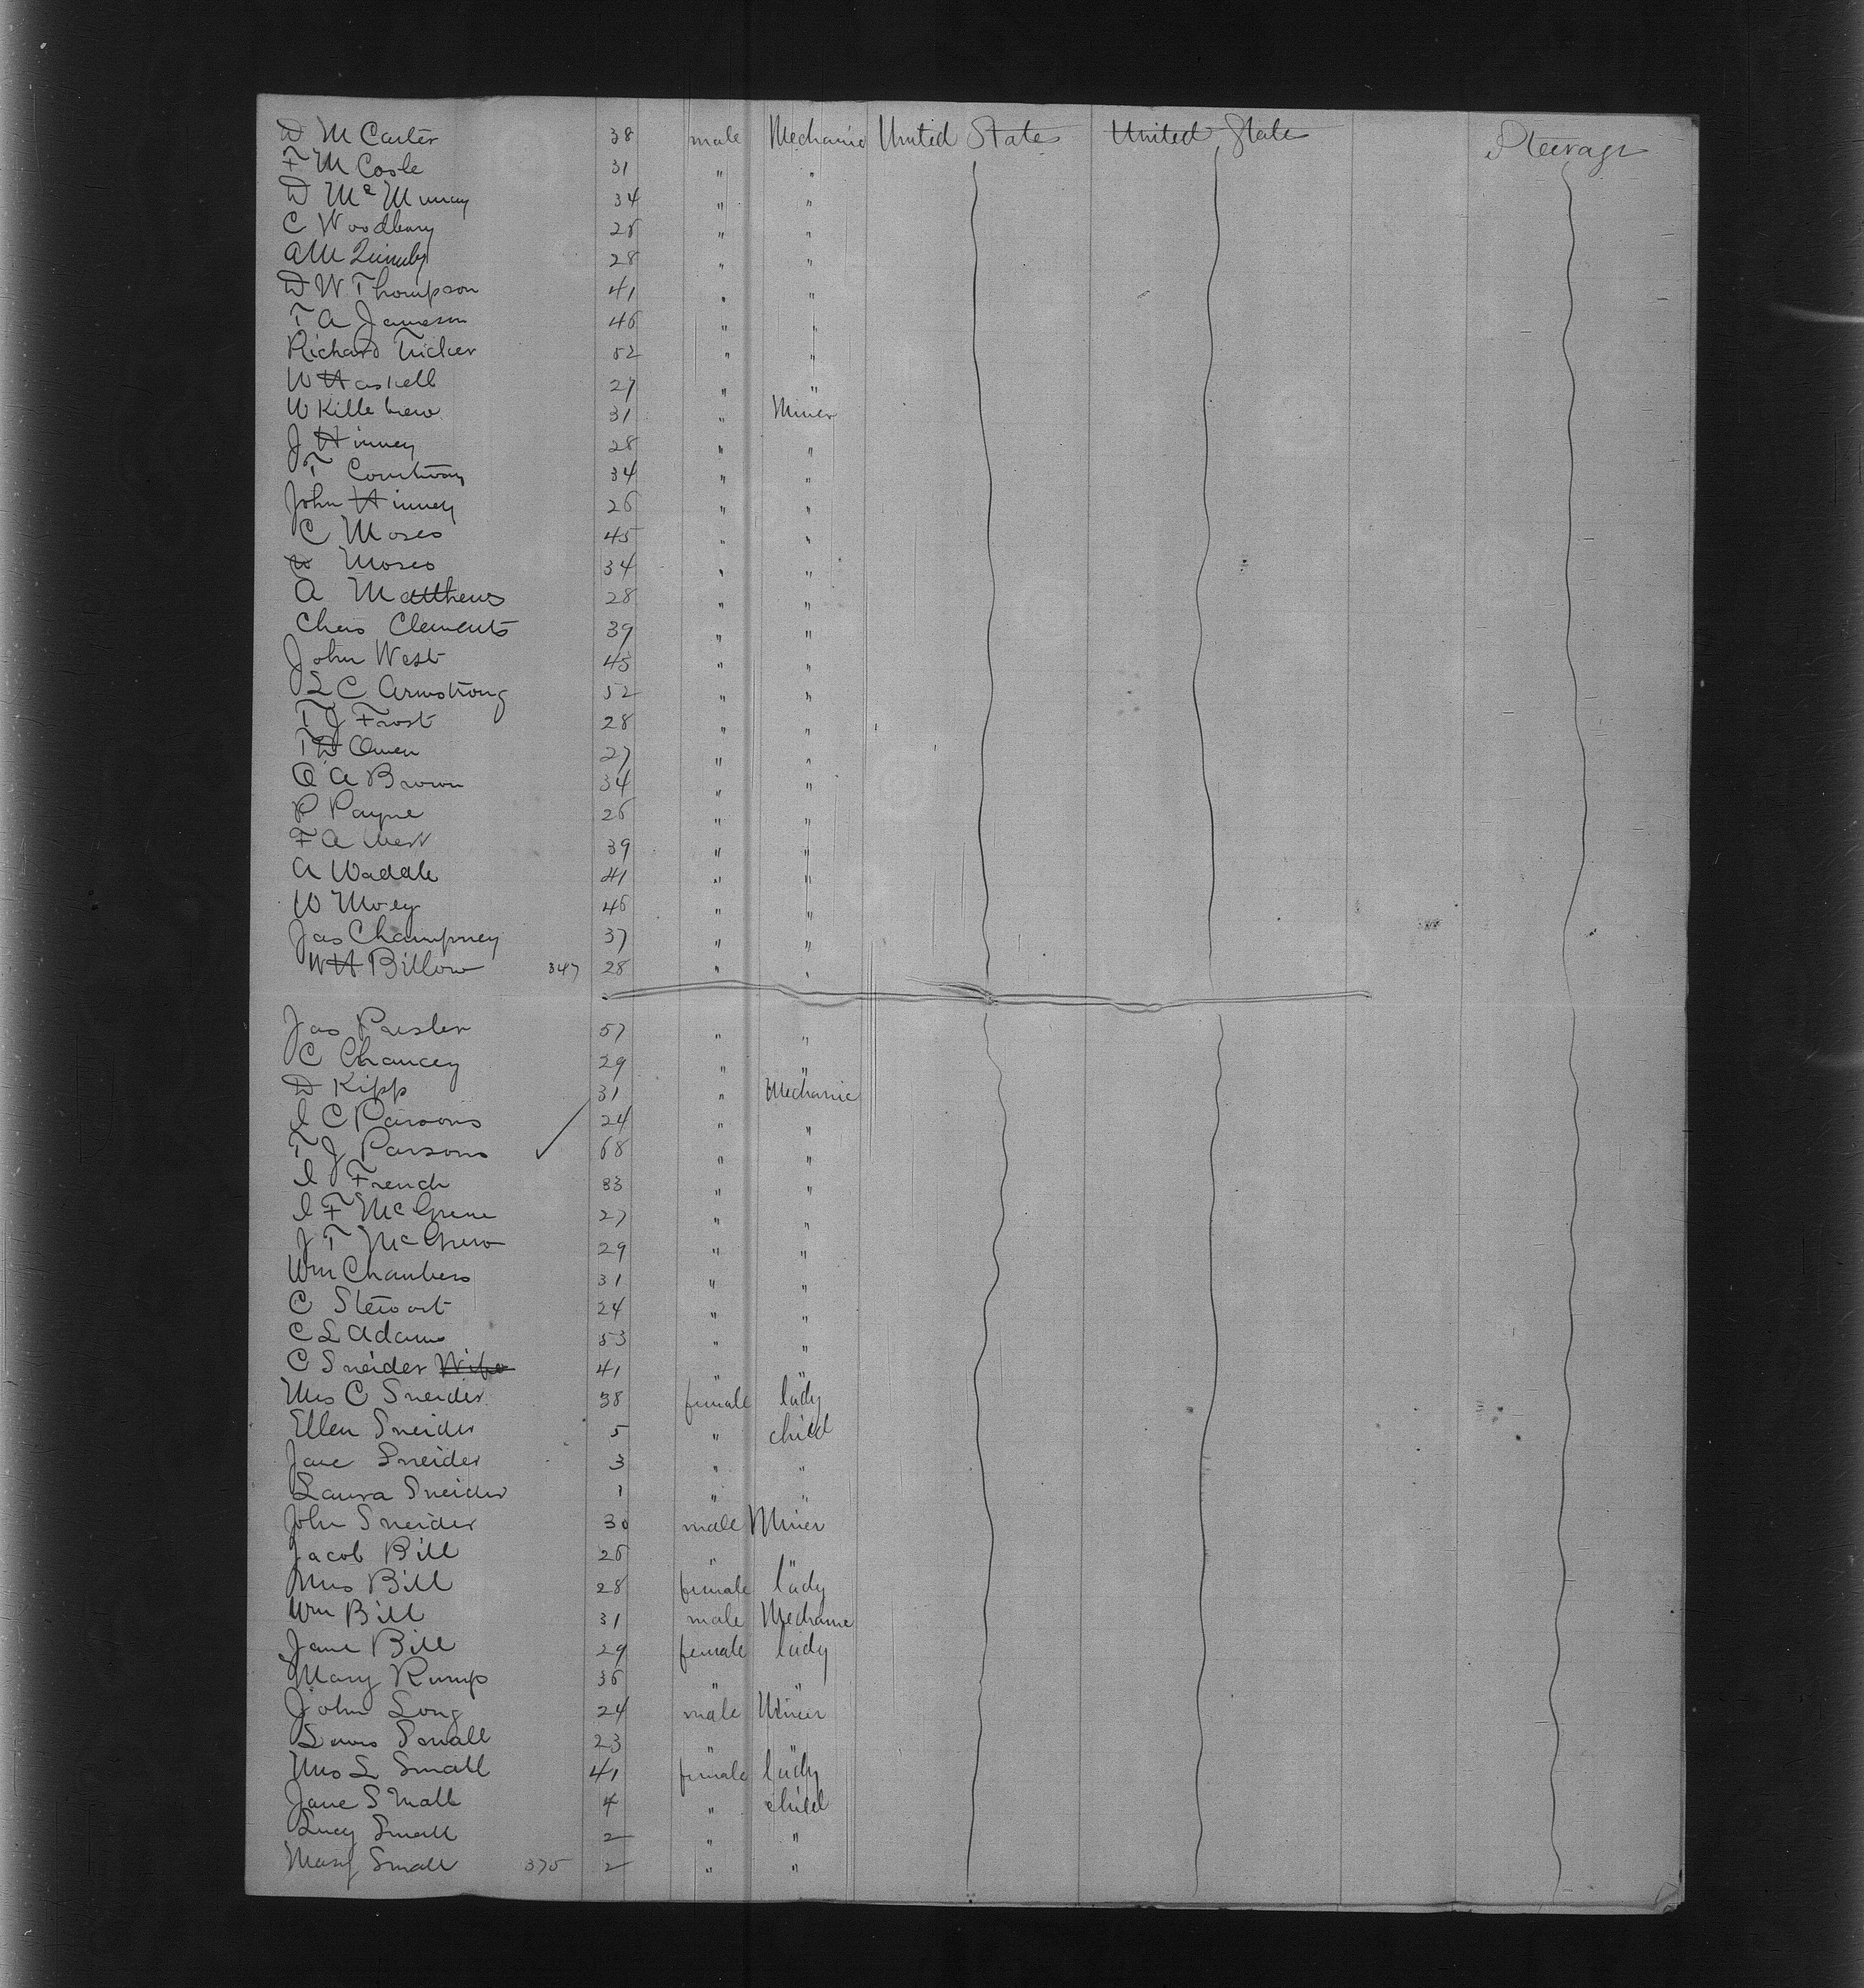 D M Carter 38 male Mechanic United States United States Steerage
F M Cosle 31 " "
D Mc Murray 34 " "
C Woodbury 26 " "
A M Quimby 28 " "
D W Thompson 41 " "
T A Jameson 46 " "
Richard Tricker 52 " "
W Haskell 27 " "
W Killebrew 31 " Miner
J Hinney 28 " "
T Courtway 34 " "
John Hinney 26 " "
C Moses 45 " "
Moses 34 " "
A Matthews 28 " "
Chas Clements 39 " "
John West 43 " "
L C Armstrong 52 " "
T J Frost 28 " "
T D Owen 27 " "
A Brown 34 " "
P Payne 26 " "
F A West 39 " "
A Waddle 41 " "
W 46 " "
Jas Champney 37 " "
W H Billow 347 28 " "
Jas 57 " "
C Chancey 29 " "
D Kipp 31 " Mechanic
I C Parsons 24 " "
T J Parsons 68 " "
I French 33 " "
I F McGrew 27 " "
J T McGrew 29 " "
Wm Chambers 31 " "
C Stewart 24 " "
C L Adams 53 " "
C Sneider Wife 41 " "
Mrs C Sneider 38 female lady
Ellen Sneider 5 " child
Jane Sneider 3 " "
Laura Sneider 1 " "
John Sneider 30 male Miner
Jacob Bill 26 " "
Mrs Bill 28 female lady
Wm Bill 31 male Mechanic
Jane Bill 29 female lady
Mary Rump 36 " "
John Long 24 male Miner
Lewis Small 23 " "
Mrs L Small 41 female lady
Jane Small 4 " child
Lucy Small 2 " "
Mary Small 375 2 " "